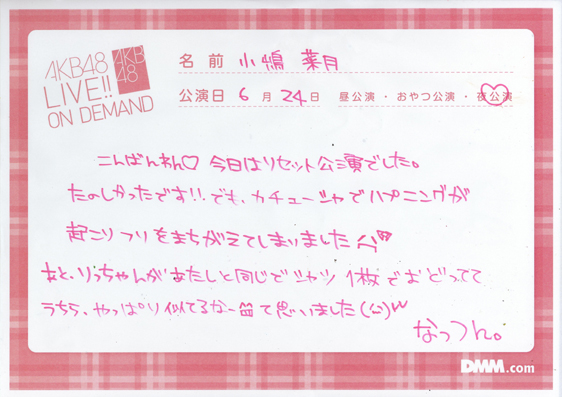 AKB48
LIVE!!
ON DEMAND
AKB
48
名前 小嶋 菜月
公演日 6月24日 昼公演・おやつ公演・夜公演
こんばんわん♡ 今日はリセット公演でした。
たのしかったです!!でも、カチューシャでハプニングが
起こりフリをまちがえてしまいました
あと、りっちゃんがあたしと同じでシャツ1枚でおどってて
うちら、やっぱり似てるなー て思いました(^^)w
なっつん。
DMM.com